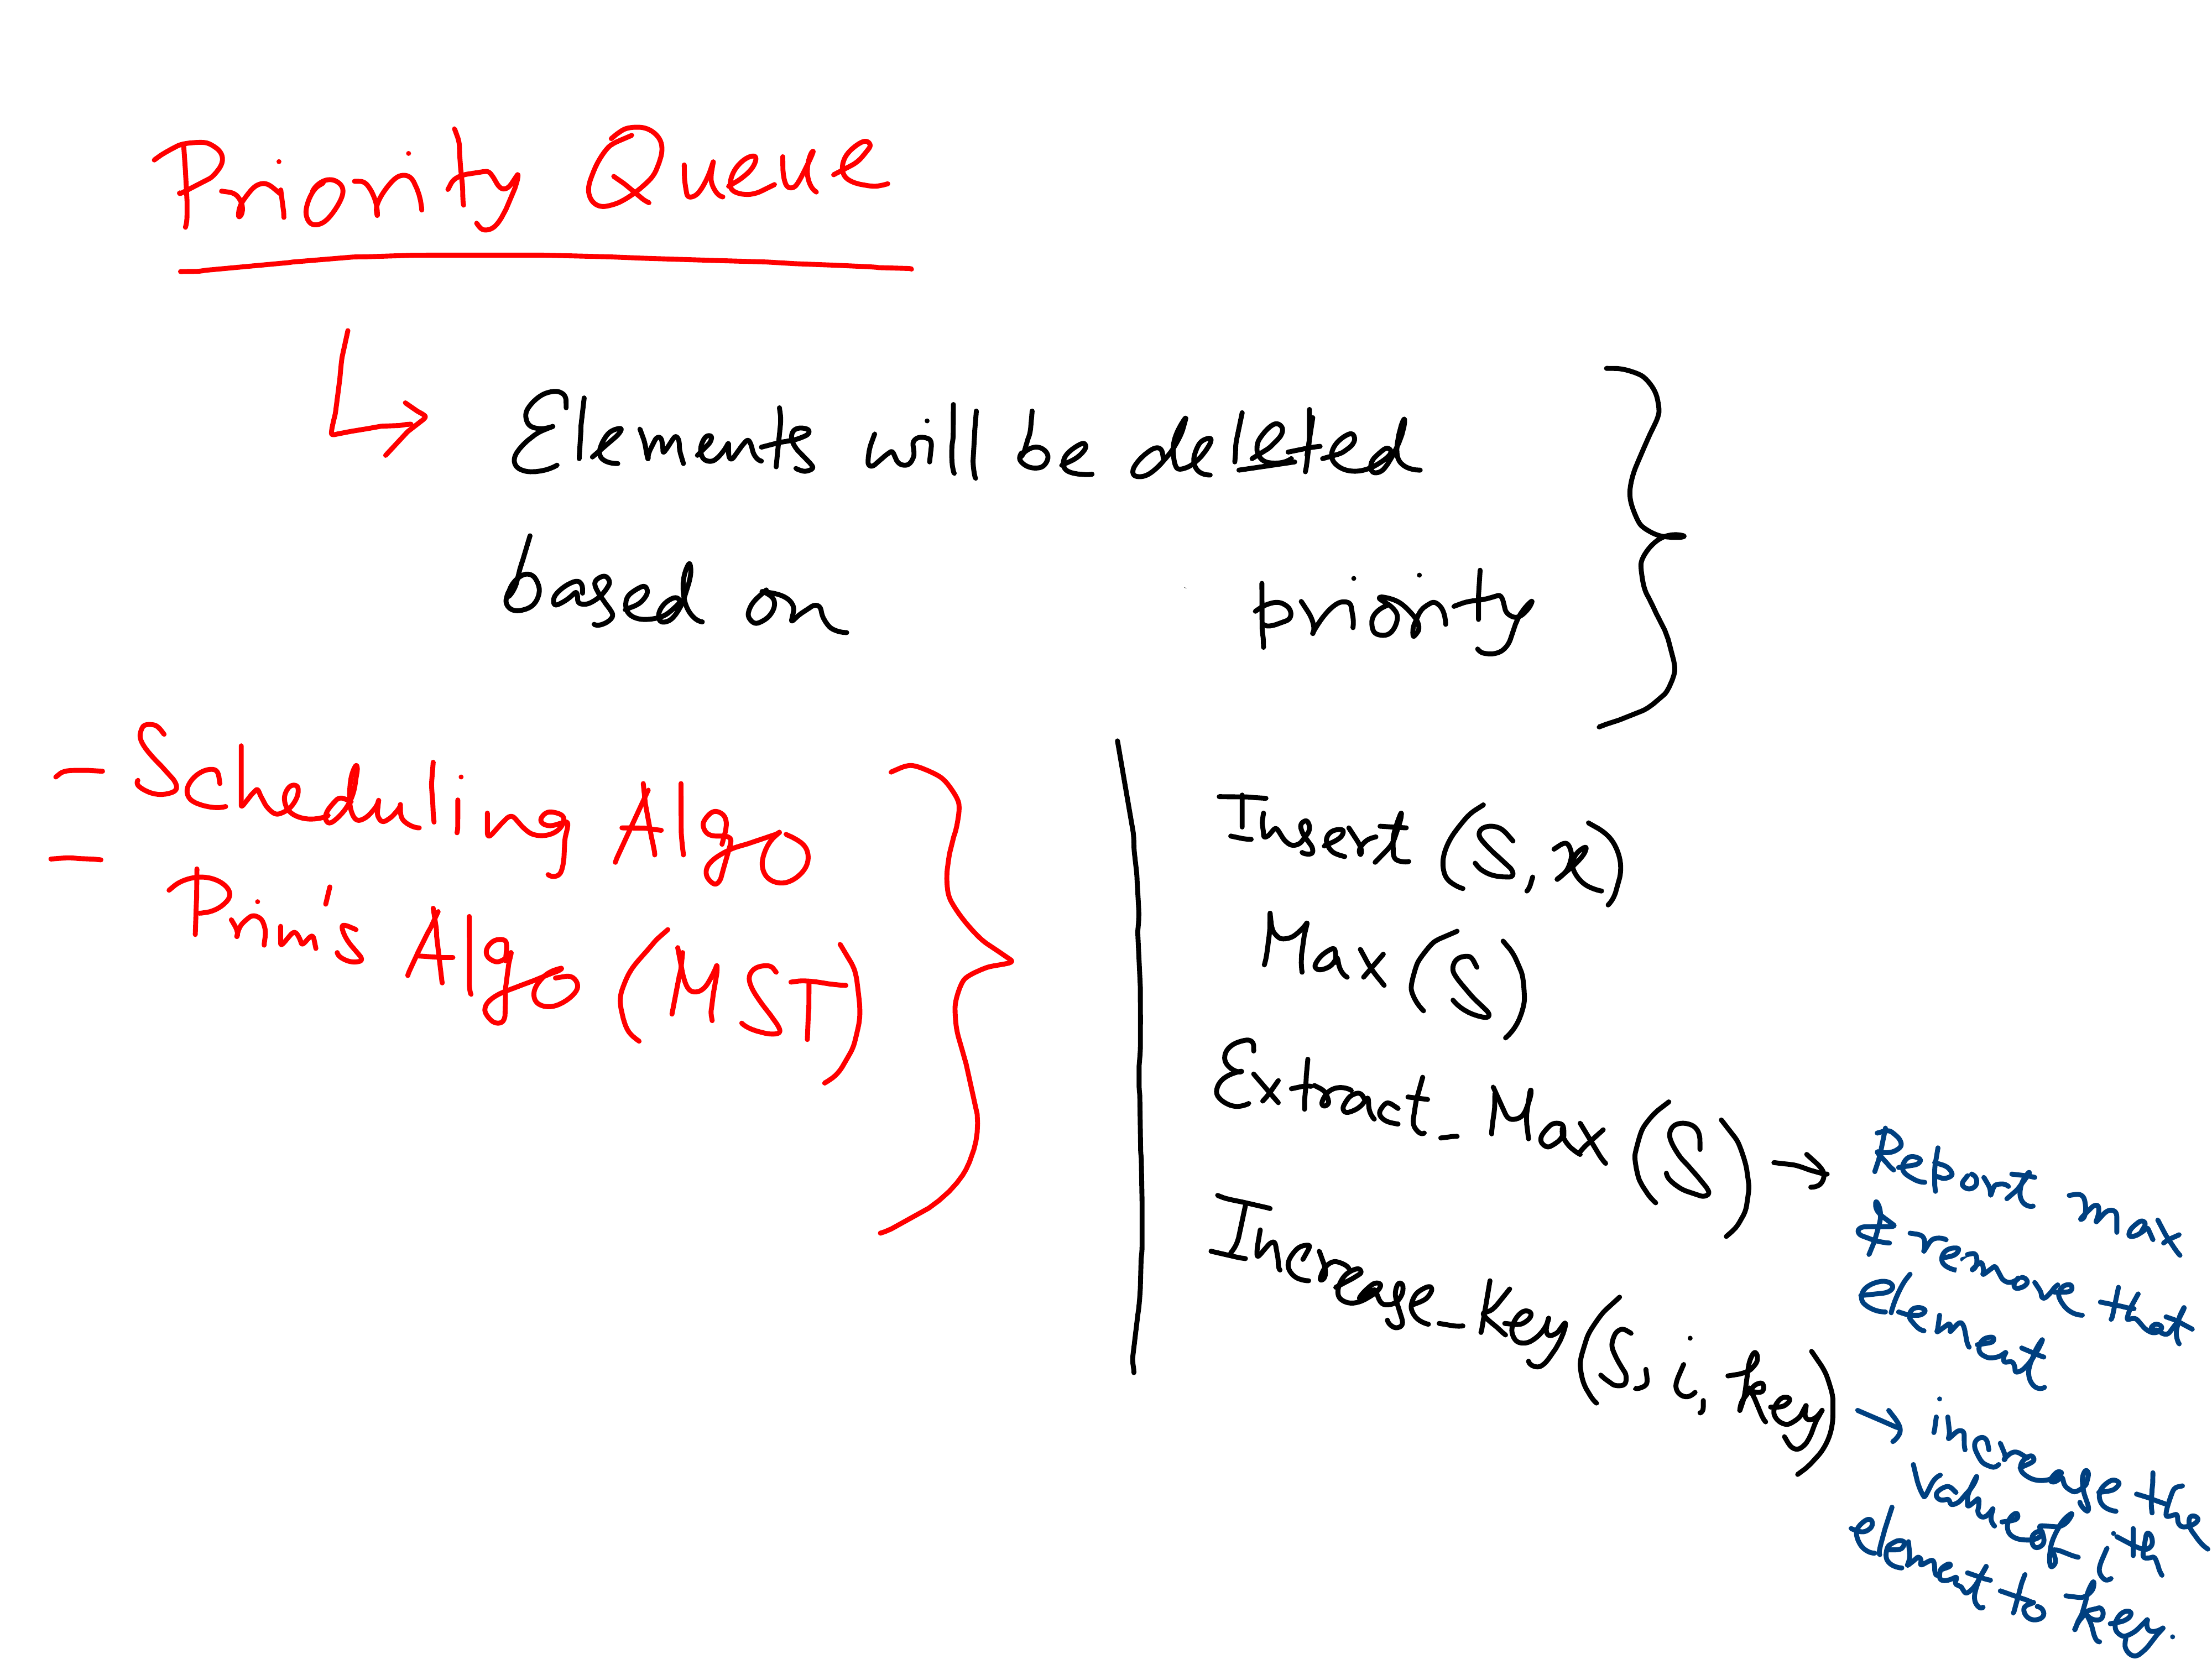 Priority Queue
Elements will be deleted
based on priority
- Scheduling Algo
- Prim's Algo (MST)
Insert (S, x)
Max (S)
Extract_Max (S) → Report max
& remove that
element
Increase_key (S, i, key) → increase the
value of ith
element to key.